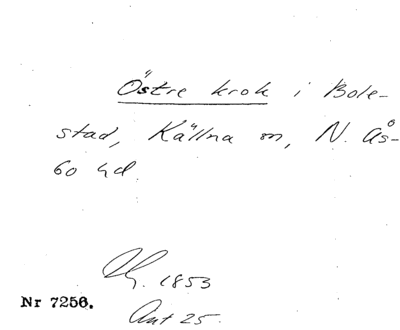 Östre krok i Bole-
stad, Källna sn, N. Ås-
bo hd.
Lg. 1853
Nr 7256.
Ant 25.